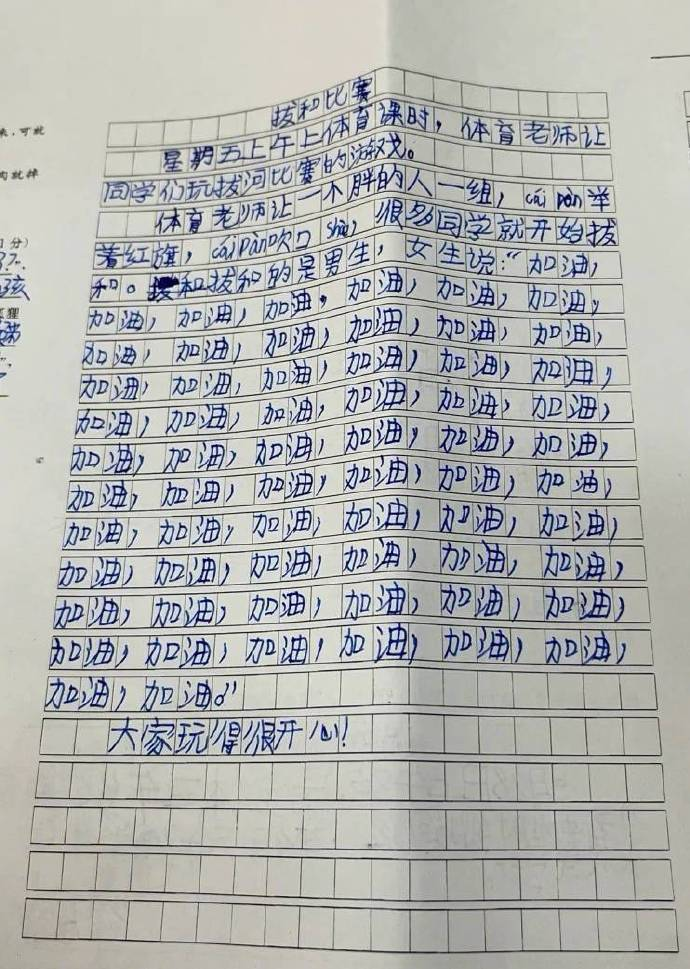 拔和比赛
星期五上午上体育课时，体育老师让
同学们玩拔河比赛的游戏。
体育老师让一不胖的人一组，cái pàn举
着红旗，cáipàn吹口shào，很多同学就开始拔
和。和拔和的是男生，女生说：“加油，
加油，加油，加油，加油，加油，加油，
加油，加油，加油，加油，加油，加油，
加油，加油，加油，加油，加油，加油，
加油，加油，加油，加油，加油，加油，
加油，加油，加油，加油，加油，加油，
加油，加油，加油，加油，加油，加油，
加油，加油，加油，加油，加油，加油，
加油，加油，加油，加油，加油，加油，
加油，加油，加油，加油，加油，加油，
加油，加油，加油，加油，加油，加油，
加油，加油。”
大家玩得很开心！